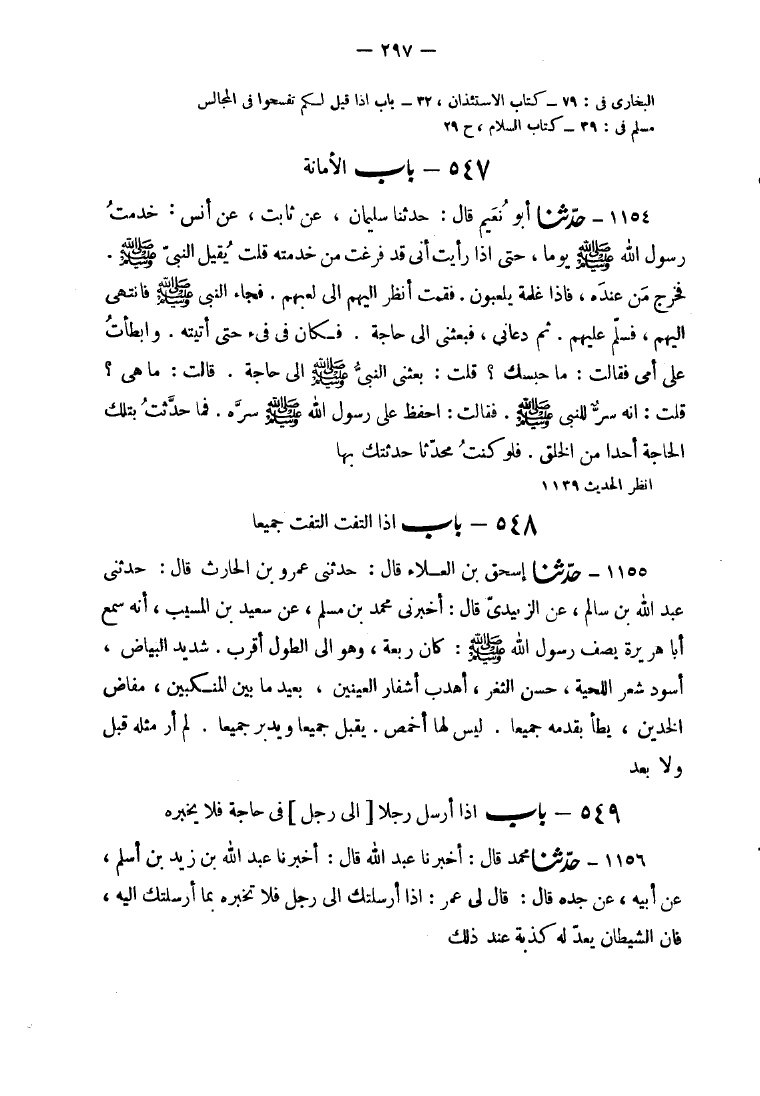 — ٢٩٧ —
البخارى فى : ٧٩ ــ كتاب الاستئذان ، ٣٢ ــ باب اذا قيل لـكم تفسحوا فى المجالس
مسلم فى : ٣٩ ــ كتاب السلام ، ح ٢٩
٥٤٧ — باب الأمانة
١١٥٤ ــ حدّثنا أبو نُعَيم قال : حدثنا سليمان ، عن ثابت ، عن أنس : خدمتُ
رسول الله ﷺ يوما ، حتى اذا رأيت أنى قد فرغت من خدمته قلت يُقيل النبىّ ﷺ .
فخرج مَن عندَه ، فاذا غلمة يلعبون . فقمت أنظر اليهم الى لعبهم . فجاء النبى ﷺ فانتهى
اليهم ، فسلّم عليهم . ثم دعانى ، فبعثنى الى حاجة . فـكان فى فىء حتى أتيته . وابطأتُ
على أمى فقالت : ما حبسك ؟ قلت : بعثنى النبىُّ ﷺ الى حاجة . قالت : ما هى ؟
قلت : انه سرٌّ للنبى ﷺ . فقالت : احفظ على رسول الله ﷺ سرَّه . فما حدَّثتُ بتلك
الحاجة أحدا من الخلق . فلو كنتُ محدّثا حدثتك بها
انظر الحديث ١١٣٩
٥٤٨ — باب اذا التفت التفت جميعا
١١٥٥ ــ حدّثنا إسحق بن العـلاء قال : حدثنى عمرو بن الحارث قال : حدثنى
عبد الله بن سالم ، عن الزبيدىّ قال : أخبرنى محمد بن مسلم ، عن سعيد بن المسيب ، أنه سمع
أبا هريرة يصف رسول الله ﷺ : كان ربعة ، وهو الى الطول أقرب . شديد البياض ،
أسود شعر اللحية ، حسن الثغر ، أهدب أشفار العينين ، بعيد ما بين المنـكبين ، مفاض
الخدين ، يطأ بقدمه جميعا . ليس لها أخمص . يقبل جميعا ويدبر جميعا . لم أر مثله قبل
ولا بعد
٥٤٩ — باب اذا أرسل رجلا [ الى رجل ] فى حاجة فلا يخبره
١١٥٦ ــ حدّثنا محمد قال : أخبرنا عبد الله قال : أخبرنا عبد الله بن زيد بن أسلم ،
عن أبيه ، عن جده قال : قال لى عمر : اذا أرسلتك الى رجل فلا تخبره بما أرسلتك اليه ،
فان الشيطان يعدّ له كذبة عند ذلك